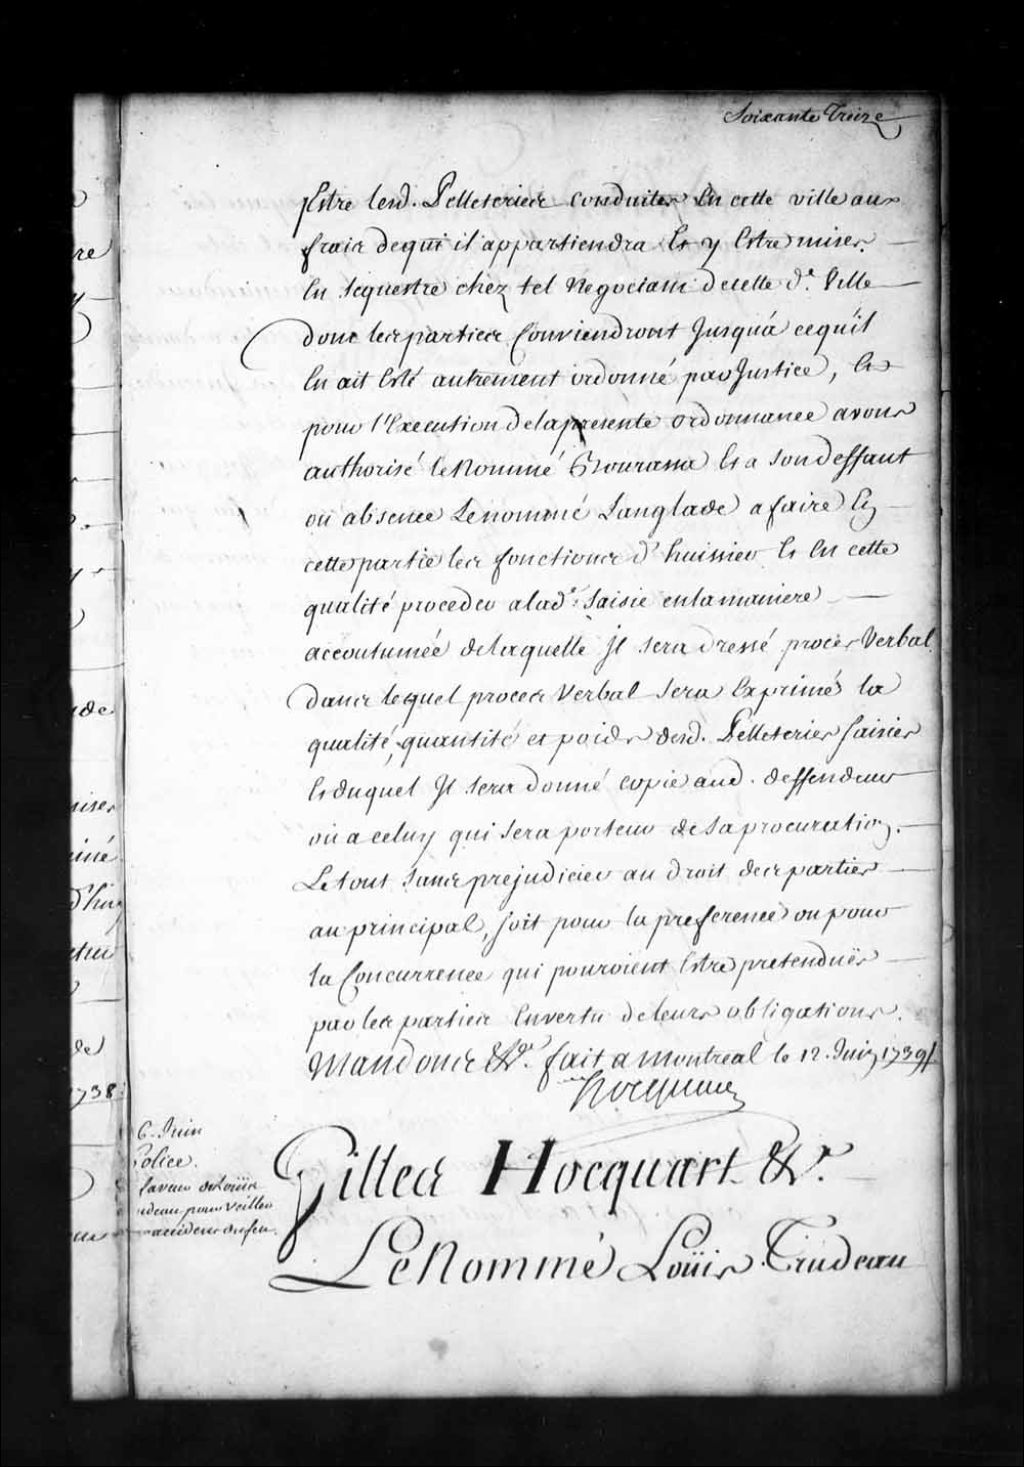 Soixante Treize
Estre lesd. Pelleteries conduites En cette ville aux
frais de qui il appartiendra Et y Estre mises
En sequestre chéz tel Negociant de cette d.e Ville
dont les parties Conviendront Jusqu'à ce qu'il
En ait Esté autrement ordonné par Justice, Et
pour l'Execution de la presente ordonnance avons
authorisé le Nommé Bourassa Et a son deffaut
ou absence Le nommé Langlade a faire En
cette partie les fonctions d'huissier Et En cette
qualité proceder a lad.e Saisie en la maniere
accoutumée de laquelle Jl sera dressé procés Verbal
Dans lequel proces Verbal sera Exprimé la
qualité, quantité et poids desd. Pelleteries saisies
Et duquel Jl sera donné copie aud. deffendeur
ou a celuy qui sera porteur de sa procuration.
Le tout sans prejudicier au droit des parties
au principal, soit pour la preference ou pour
la Concurrence qui pouroient Estre pretenduës
par les parties En vertu de leurs obligations.
Mandons &c.a fait a Montreal le 12. Juin 1739
Hocquart
6. Juin
Police.
faveur de Loüis
udeau pour veiller
accidens du feu.
Gilles Hocquart &c.a
Le Nommé Loüis Trudeau
re
de
mises
iné
d'hui
1738